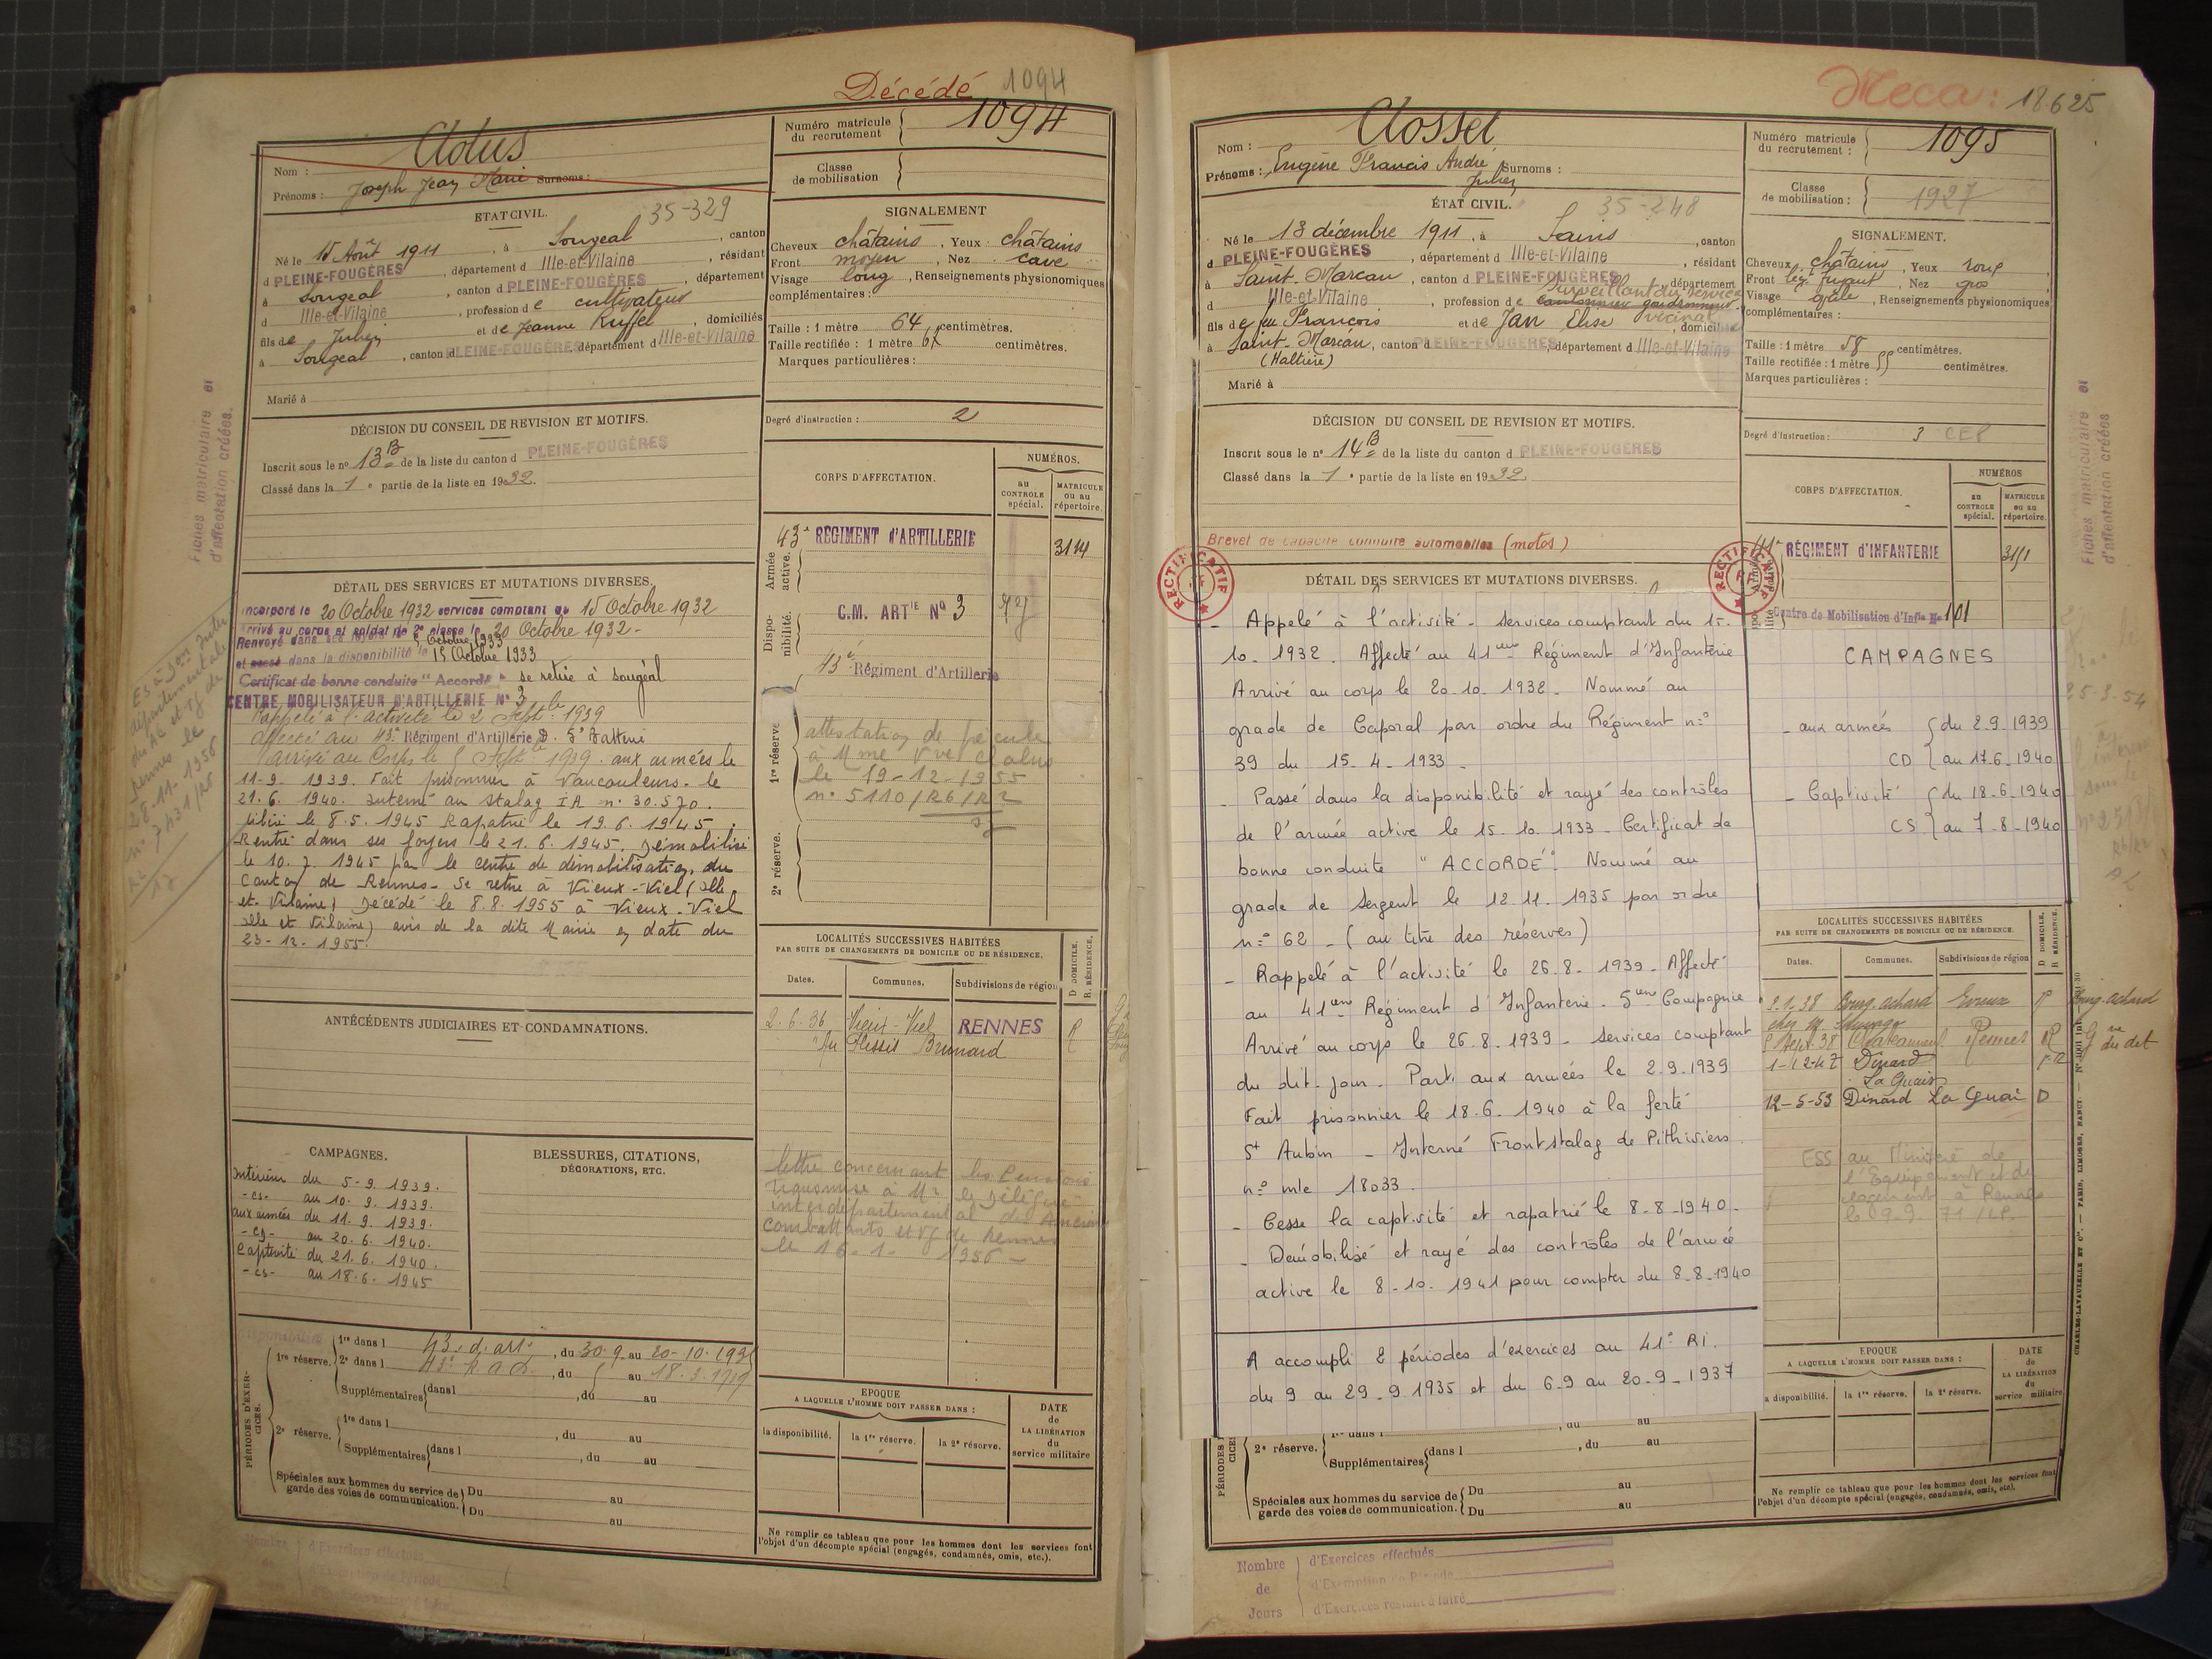 Décédé 1094
Clolus
Nom :
Prénoms : Joseph Jean Marie Surnoms :
Numéro matricule du recrutement 1094
Classe de mobilisation
ETAT CIVIL. 35-329
Né le 15 Août 1911, à Sougeal, canton
d PLEINE-FOUGÈRES, département d Ille-et-Vilaine, résidant
à Sougeal, canton d PLEINE-FOUGÈRES, département
d Ille-et-Vilaine, profession de cultivateur
fils de Julien et de Jeanne Ruffel, domiciliés
à Sougeal, canton d PLEINE-FOUGÈRES, département d Ille-et-Vilaine
Marié à
SIGNALEMENT
Cheveux châtains, Yeux châtains
Front moyen, Nez cave
Visage long, Renseignements physionomiques
complémentaires :
Taille : 1 mètre 64 centimètres.
Taille rectifiée : 1 mètre centimètres.
Marques particulières :
Degré d'instruction : 2
DÉCISION DU CONSEIL DE REVISION ET MOTIFS.
Inscrit sous le nº 13 B de la liste du canton d PLEINE-FOUGÈRES
Classé dans la 1e partie de la liste en 1932.
CORPS D'AFFECTATION.
NUMÉROS.
au CONTROLE spécial.
MATRICULE ou au répertoire.
Armée active.
43e RÉGIMENT d'ARTILLERIE 3114
Disponibilité.
C.M. ARTIE Nº 3
43e Régiment d'Artillerie
1re réserve
attestation de pécule
à Mme Vve Clolus
le 19-12-1955
nº 5110/R6/R2
2e réserve.
Fiches matriculaire et
d'affectation créées.
ES à Son Inter
départementale
du AC et VG de
Rennes le
28-11-1956
nº 7431/R6
R2
DÉTAIL DES SERVICES ET MUTATIONS DIVERSES.
Incorporé le 20 Octobre 1932 services comptant du 15 Octobre 1932
Arrivé au corps et soldat de 2e classe le 20 Octobre 1932-
Renvoyé dans ses foyers le 5 Octobre 1933
et passé dans la disponibilité le 15 Octobre 1933
Certificat de bonne conduite "Accordé" se retire à Sougeal
CENTRE MOBILISATEUR D'ARTILLERIE Nº 3
Rappelé à l'activité le 2 Septbre 1939
affecté au 43e Régiment d'Artillerie D. 5e Batterie
arrivé au Corps le 5 Septbre 1939. aux armées le
11-9-1939. Fait prisonnier à Vaucouleurs. le
21.6.1940. interné au stalag IA nº 30.570.
libéré le 8.5.1945 Rapatrié le 19.6.1945.
Rentré dans ses foyers le 21.6.1945. Démobilisé
le 10.7.1945 par le centre de démobilisation du
canton de Rennes- Se retire à Vieux-Viel (Ille
et Vilaine) Décédé le 8.8.1955 à Vieux-Viel
Ille et Vilaine) avis de la dite Mairie en date du
23-12-1955.
ANTÉCÉDENTS JUDICIAIRES ET CONDAMNATIONS.
LOCALITÉS SUCCESSIVES HABITÉES
PAR SUITE DE CHANGEMENTS DE DOMICILE OU DE RÉSIDENCE.
Dates. Communes. Subdivisions de région D DOMICILE. R. RÉSIDENCE.
2.6.36 Vieux-Viel RENNES R
Au Plessis Brunard
lettre concernant les Pensions
transmise à Mr le Délégué
interdépartemental des Anciens
combattants et VG de Rennes
le 16-1-1956-
CAMPAGNES.
Intérieur du 5-9.1939.
-CS- au 10.9.1939.
aux armées du 11.9.1939.
-CD- au 20.6.1940.
Captivité du 21.6.1940.
-CS- au 18.6.1945
BLESSURES, CITATIONS,
DÉCORATIONS, ETC.
PÉRIODES D'EXERCICES.
1re réserve. 1re dans l 43e d'art, du 30.9 au 20-10-1935
2e dans l 43e R.A.D., du au 18.3.1939
Supplémentaires dans l, du au
2e réserve. 1re dans l, du au
Supplémentaires dans l, du au
Spéciales aux hommes du service de garde des voies de communication. Du au
Du au
EPOQUE
A LAQUELLE L'HOMME DOIT PASSER DANS :
la disponibilité. la 1re réserve. la 2e réserve.
DATE de LA LIBÉRATION du service militaire
Ne remplir ce tableau que pour les hommes dont les services font
l'objet d'un décompte spécial (engagés, condamnés, omis, etc.).
Nombre de Jours
d'Exercices effectués
d'Exemption de Période
Meca : 18625
Closset
Nom :
Prénoms : Eugène Francis André Surnoms :
Julien
Numéro matricule du recrutement : 1095
Classe de mobilisation : 1927
ÉTAT CIVIL. 35-248
Né le 13 décembre 1911, à Sains, canton
d PLEINE-FOUGÈRES, département d Ille-et-Vilaine, résidant
à Saint-Marcan, canton d PLEINE-FOUGÈRES, département
d Ille-et-Vilaine, profession de cantonnier goudronneur Surveillant du service vicinal
fils de feu François et de Jan Elise, domiciliée
à Saint-Marcan, canton d PLEINE-FOUGÈRES, département d Ille-et-Vilaine
(Haltière)
Marié à
SIGNALEMENT.
Cheveux châtains, Yeux
Front fuyant, Nez gros
Visage ovale, Renseignements physionomiques
complémentaires :
Taille : 1 mètre 58 centimètres.
Taille rectifiée : 1 mètre 55 centimètres.
Marques particulières :
Degré d'instruction : 3 CEP
DÉCISION DU CONSEIL DE REVISION ET MOTIFS.
Inscrit sous le nº 14 B de la liste du canton d PLEINE-FOUGÈRES
Classé dans la 1e partie de la liste en 1932.
Brevet de capacité conduite automobiles (motos)
RECTIFICATIF
RECTIFICATIF
CORPS D'AFFECTATION.
NUMÉROS
au CONTROLE spécial.
MATRICULE ou au répertoire.
41e RÉGIMENT d'INFANTERIE
Centre de Mobilisation d'Infie Nº 101
Fiches matriculaire et
d'affectation créées
DÉTAIL DES SERVICES ET MUTATIONS DIVERSES.
- Appelé à l'activité - services comptant du 15-
10-1932. Affecté au 41ème Régiment d'Infanterie
Arrivé au corps le 20-10-1932- Nommé au
grade de Caporal par ordre du Régiment nº
39 du 15-4-1933-
- Passé dans la disponibilité et rayé des contrôles
de l'armée active le 15-10-1933- Certificat de
bonne conduite "ACCORDÉ". Nommé au
grade de Sergent le 12.11.1935 par ordre
nº 62 - (au titre des réserves)
- Rappelé à l'activité le 26-8-1939- Affecté
au 41ème Régiment d'Infanterie- 5ème Compagnie
Arrivé au corps le 26-8-1939- services comptant
du dit-jour- Parti aux armées le 2-9-1939
Fait prisonnier le 18.6.1940 à la ferté
St Aubin - Interné Frontstalag de Pithiviers
nº mle 18033.
- Cesse la captivité et rapatrié le 8-8-1940-
- Démobilisé et rayé des contrôles de l'armée
active le 8-10-1941 pour compter du 8-8-1940
A accompli 2 périodes d'exercices au 41e RI.
du 9 au 29-9-1935 et du 6-9 au 20-9-1937
CAMPAGNES
- aux armées du 2.9.1939
CD au 17.6.1940
- Captivité du 18-6-1940
CS au 7-8-1940
LOCALITÉS SUCCESSIVES HABITÉES
PAR SUITE DE CHANGEMENTS DE DOMICILE OU DE RÉSIDENCE.
Dates. Communes. Subdivisions de région D DOMICILE. R RÉSIDENCE.
3.1.38 Bourg-achard Evreux R
Sept. 38 Rennes R
1-12-47 Dinard
La Guais
12-5-53 Dinard La Guai D
ESS au Ministère de
l'Equipement et du
logement à Rennes
EPOQUE
A LAQUELLE L'HOMME DOIT PASSER DANS :
la disponibilité. la 1re réserve. la 2e réserve.
DATE de LA LIBÉRATION du service militaire
CHARLES-LAVAUZELLE ET Cie. — PARIS, LIMOGES, NANCY
PÉRIODES
2e réserve. 1re dans l, du au
Supplémentaires dans l, du au
Spéciales aux hommes du service de garde des voies de communication. Du au
Du au
Ne remplir ce tableau que pour les hommes dont les services font
l'objet d'un décompte spécial (engagés, condamnés, omis, etc).
Nombre de Jours
d'Exercices effectués
d'Exemption de Période
d'Exercices restant à faire